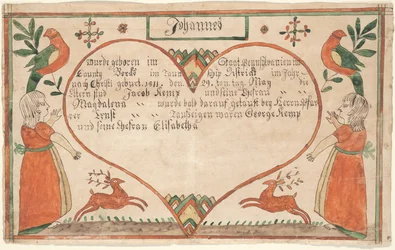 Johannes
wurde geboren im Staat Pennsilvanien in
County Berks im Taun schip District im Jahr
nach Christi geburt. 1811. den 29. ten tag May die
Eltern sind Jacob Kemp und seine Ehefrau
Magdalena wurde bald darauf getauft bey Herrn Pfar
rer Ernst Taufzeigen waren George Kemp
und seine Ehefrau Elisabetha